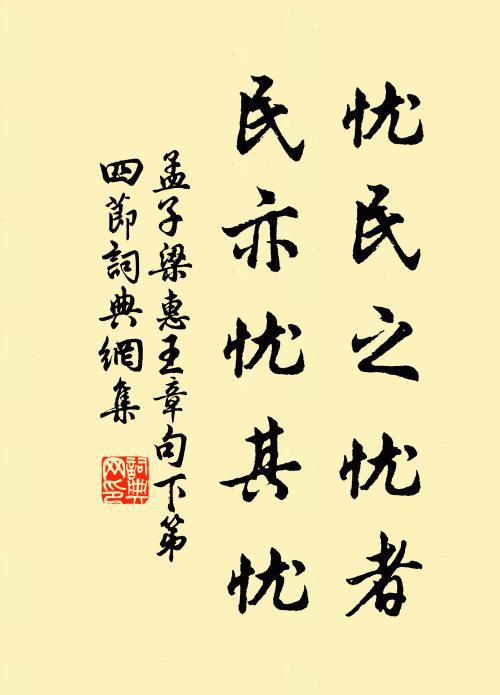 忧民之忧者
民亦忧其忧
孟子梁惠王章句下第
四節詞典網集
詞典
网印